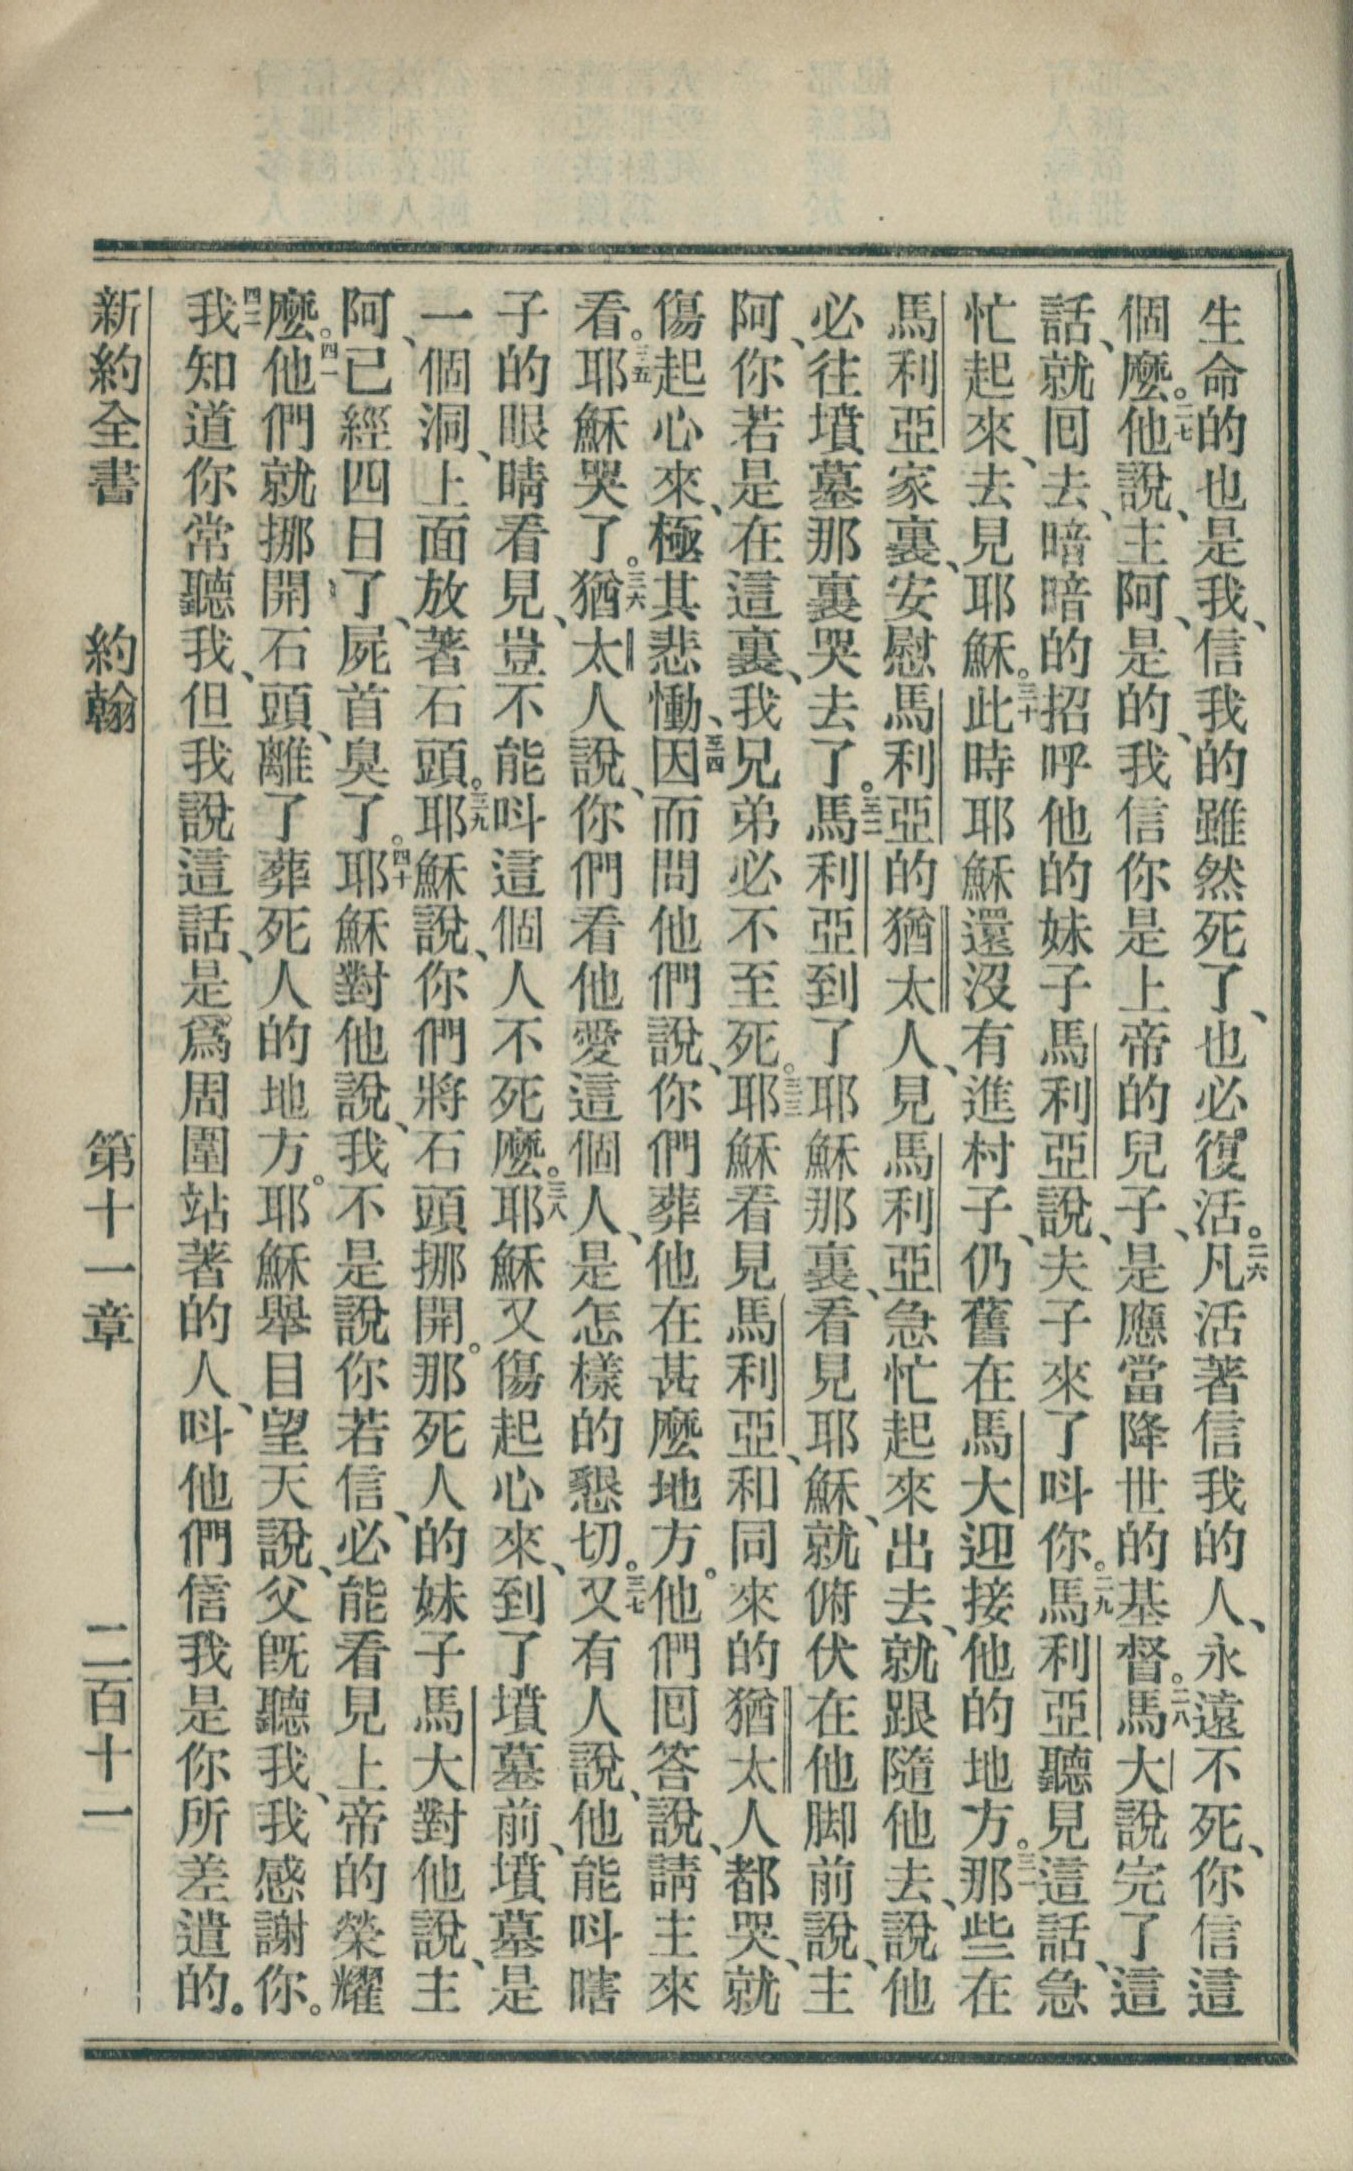 生命的也是我、信我的雖然死了、也必復活。二六凡活著信我的人、永遠不死、你信這
個麼。二七他說、主阿、是的、我信你是上帝的兒子、是應當降世的基督。二八馬大說完了這
話、就囘去、暗暗的招呼他的妹子馬利亞說、夫子來了呌你。二九馬利亞聽見這話、急
忙起來、去見耶穌。三十此時耶穌還沒有進村子、仍舊在馬大迎接他的地方。三一那些在
馬利亞家裏、安慰馬利亞的猶太人、見馬利亞急忙起來出去、就跟隨他去、說、他
必往墳墓那裏哭去了。三二馬利亞到了耶穌那裏、看見耶穌、就俯伏在他脚前說、主
阿、你若是在這裏、我兄弟必不至死。三三耶穌看見馬利亞、和同來的猶太人都哭、就
傷起心來、極其悲慟、三四因而問他們說、你們葬他在甚麼地方。他們囘答說、請主來
看。三五耶穌哭了。三六猶太人說、你們看他愛這個人、是怎樣的懇切。三七又有人說、他能呌瞎
子的眼睛看見、豈不能呌這個人不死麼。三八耶穌又傷起心來、到了墳墓前、墳墓是
一個洞、上面放著石頭。三九耶穌說、你們將石頭挪開。那死人的妹子馬大對他說、主
阿、已經四日了、屍首臭了。四十耶穌對他說、我不是說你若信、必能看見上帝的榮耀
麼。四一他們就挪開石頭、離了葬死人的地方。耶穌舉目望天說、父旣聽我、我感謝你。
四二我知道你常聽我、但我說這話、是爲周圍站著的人、呌他們信我是你所差遣的。
新約全書 約翰 第十一章 二百十一